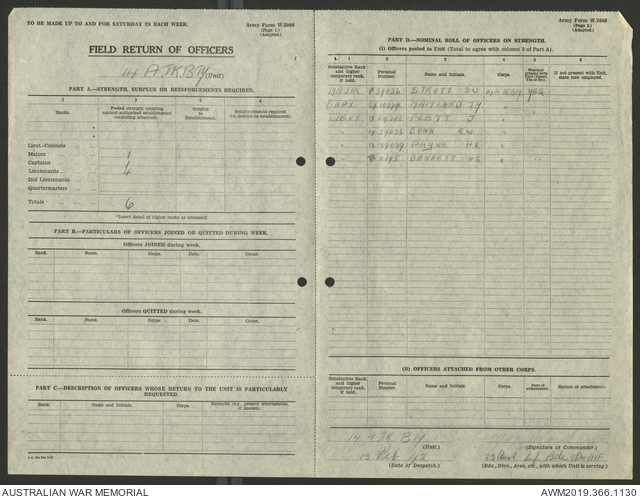 TO BE MADE UP TO AND FOR SATURDAY IN EACH WEEK.
Army Form W.3008
(Page 1.)
(Adapted.)
FIELD RETURN OF OFFICERS
14 A.TK.BTY (Unit)
PART A.—STRENGTH, SURPLUS OR REINFORCEMENTS REQUIRED.
1 2 3 4
Ranks. Posted strength counting against authorised establishment (excluding attached). Surplus to Establishment. Reinforcements required (i.e. deficits on establishment).
Lieut.-Colonels
Majors 1
Captains 1
Lieutenants 4
2nd Lieutenants
Quartermasters
Totals 6
*Insert detail of higher ranks as necessary.
PART B.—PARTICULARS OF OFFICERS JOINED OR QUITTED DURING WEEK.
Officers JOINED during week.
Rank. Name. Corps. Date.
Officers QUITTED during week.
Rank. Name. Corps. Date.
PART C.—DESCRIPTION OF OFFICERS WHOSE RETURN TO THE UNIT IS PARTICULARLY REQUESTED.
Rank. Name and Initials. Corps. Remarks (e.g., present whereabouts, if known).
Army Form W.3008
(Page 2.)
(Adapted.)
PART D.—NOMINAL ROLL OF OFFICERS ON STRENGTH.
(i) Officers posted to Unit (Total to agree with column 2 of Part A).
1 2 3 4 5 6
Substantive Rank and higher temporary rank, if held. Personal Number. Name and Initials. Corps. Whether present with Unit (Insert Yes or No). If not present with Unit, state how employed.
MAJOR STREET YES
CAPT MAITLAND JY
LIEUT PLETT J
" DUNN R.W.
" PAYNE
" BARRETT H.S.
(ii) OFFICERS ATTACHED FROM OTHER CORPS.
Substantive Rank and higher temporary rank, if held. Personal Number. Name and Initials. Corps. Date of attachment. Nature of attachment.
14 A TK BTY
(Unit.) (Signature of Commander.)
13 Feb 42 23 Aust Inf Bde
(Date of Despatch.) (Bde., Divn., Area, etc., with which Unit is serving.)
AUSTRALIAN WAR MEMORIAL
AWM2019.366.1130